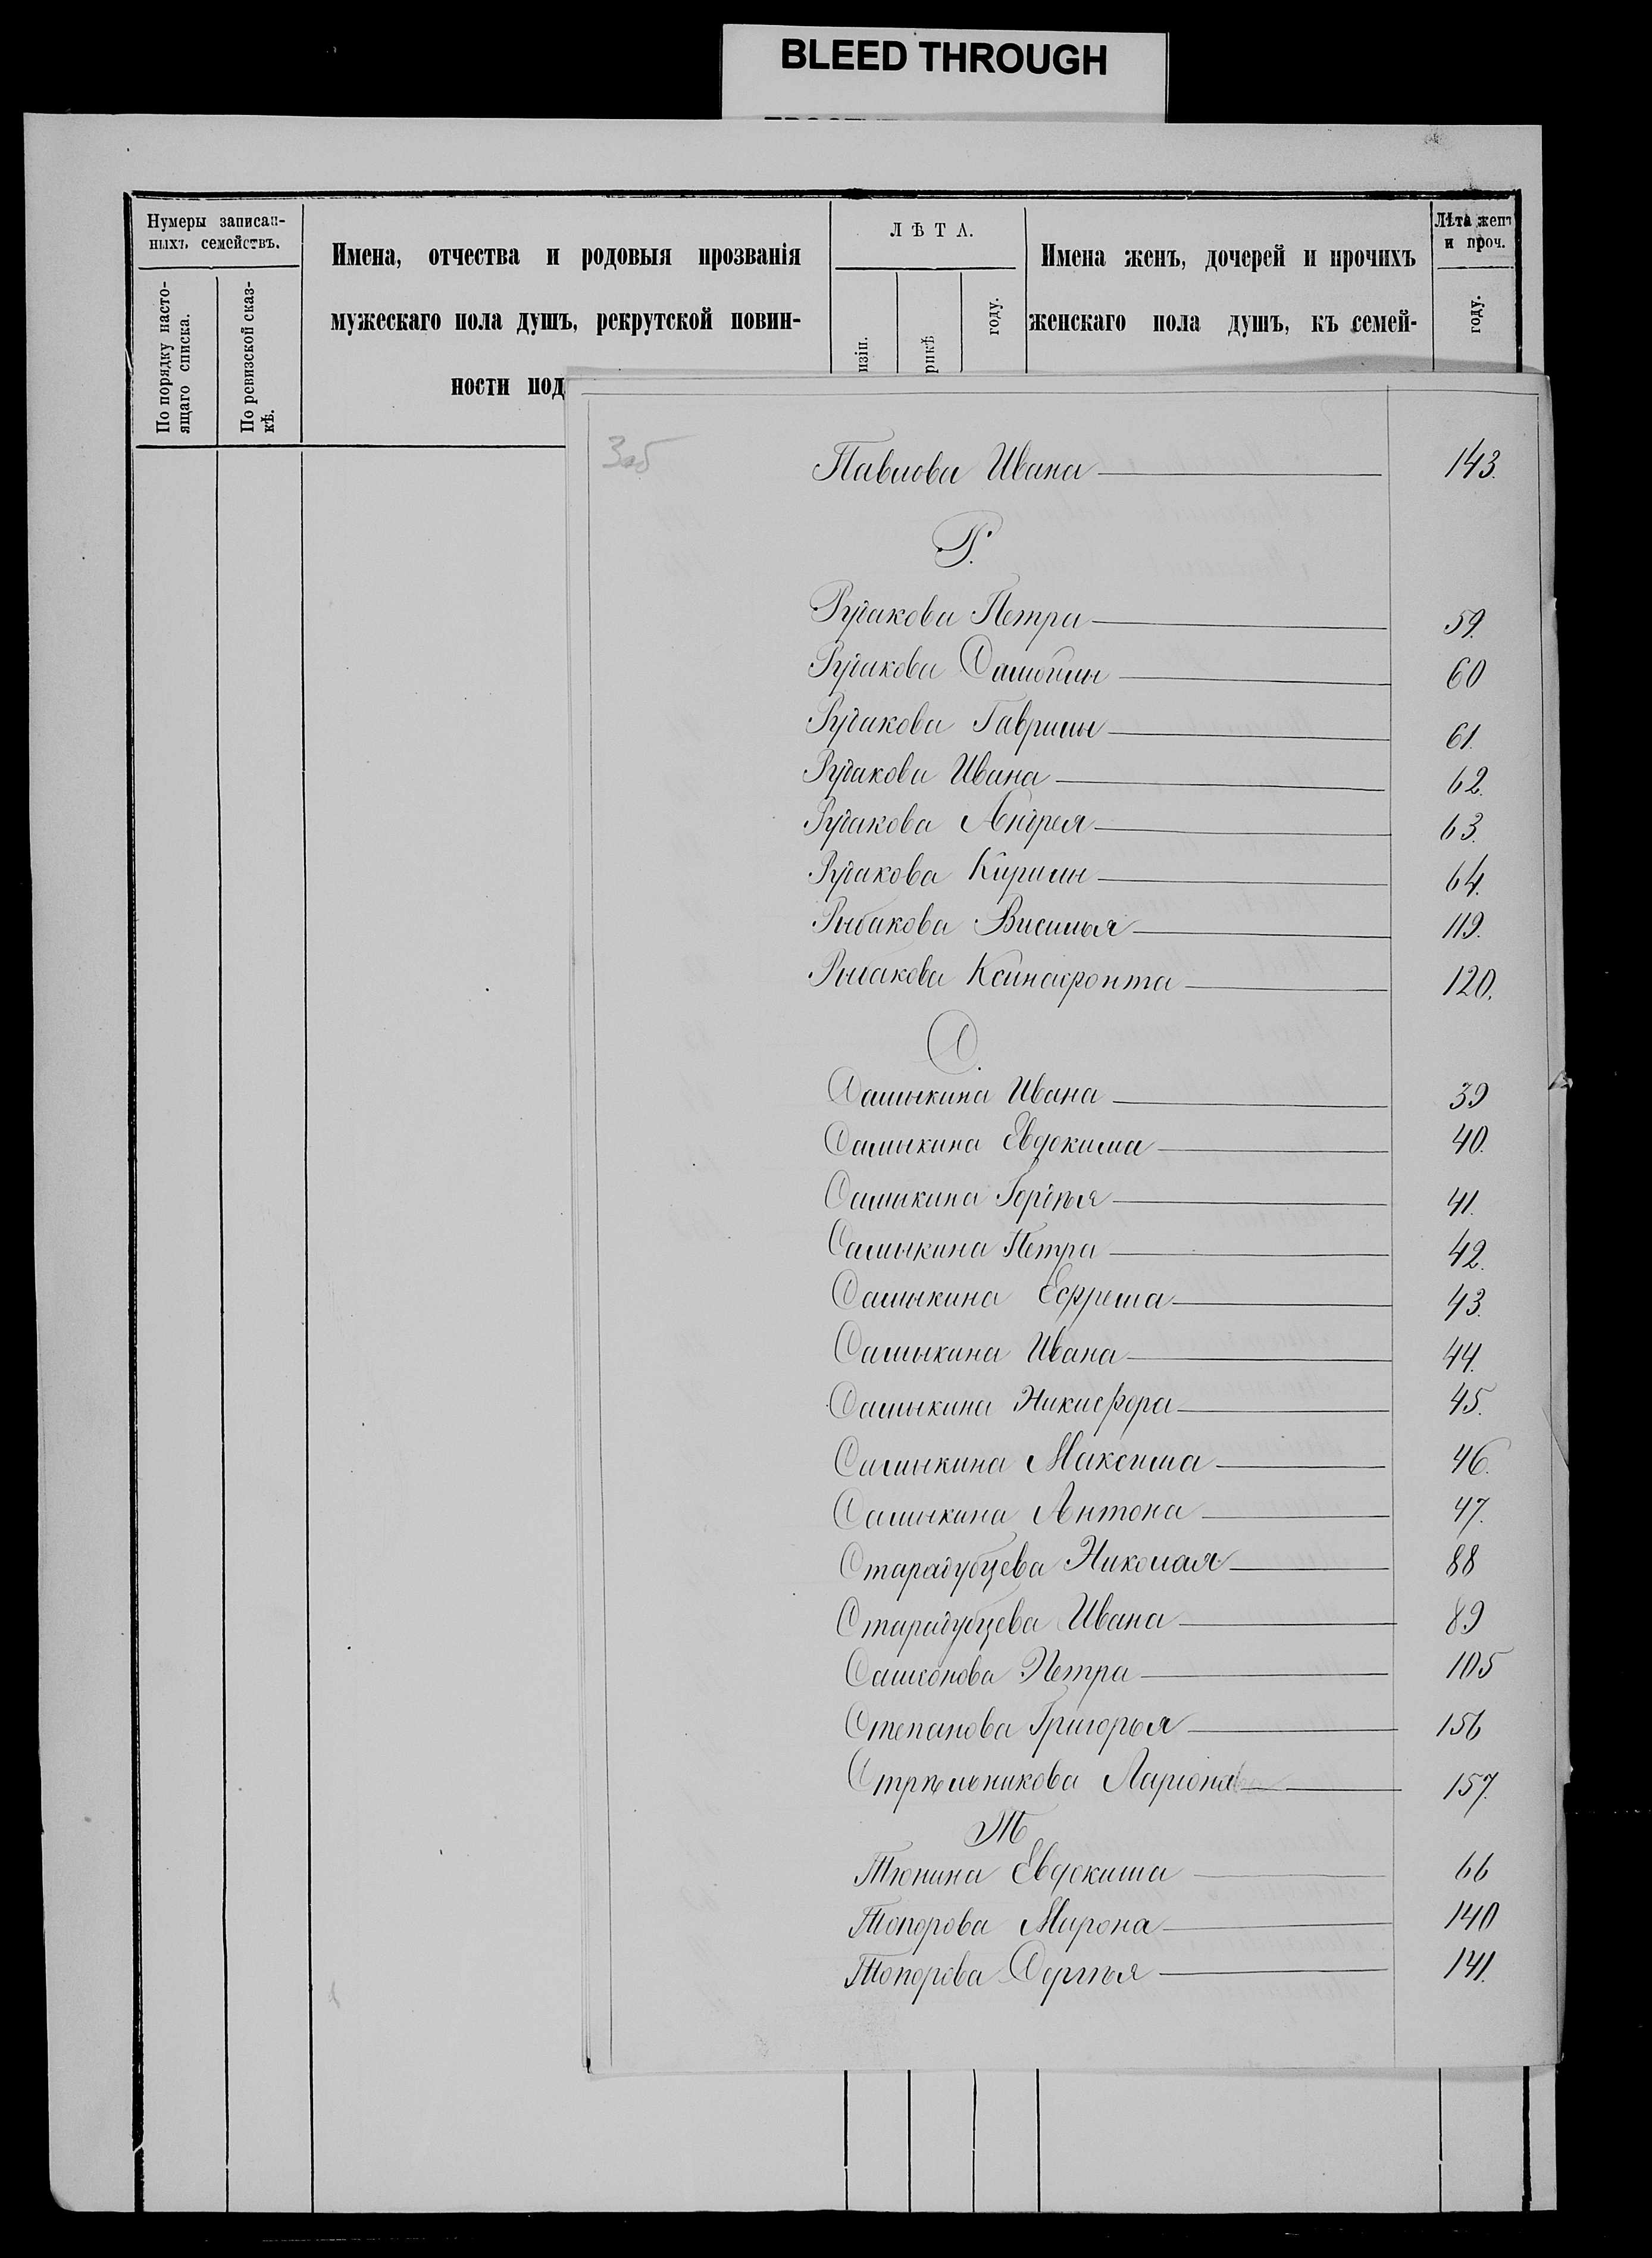 BLEED THROUGH
Нумеры записан-
ныхъ семействъ.
По порядку насто-
ящаго списка.
По ревизской сказ-
кѣ.
Имена, отчества и родовыя прозванія
мужескаго пола душъ, рекрутской повин-
ности под
ЛѢТА.
изіи.
рикѣ
году.
Имена женъ, дочерей и прочихъ
женскаго пола душъ, къ семей-
Лѣта женъ
и проч.
году.
Павлова Ивана 143.
Р.
Рудакова Петра 59.
Рудакова Самойлы 60
Рудакова Гаврилы 61.
Рудакова Ивана 62.
Рудакова Андрея 63.
Рудакова Кирилы 64.
Рыбакова Василья 119.
Рыбакова Ксинафонта 120.
С.
Самыкина Ивана 39
Самыкина Евдокима 40.
Самыкина Гордѣя 41.
Самыкина Петра 42.
Самыкина Ефрема 43.
Самыкина Ивана 44.
Самыкина Никифора 45.
Самыкина Максима 46.
Самыкина Антона 47.
Старадубцева Николая 88
Старадубцева Ивана 89
Петра 105
Степанова Григорья 156
Стрѣльникова Ларіона 157.
Т
Тюнина Евдокима 66
Топорова Мирона 140
Топорова Сергѣя 141.